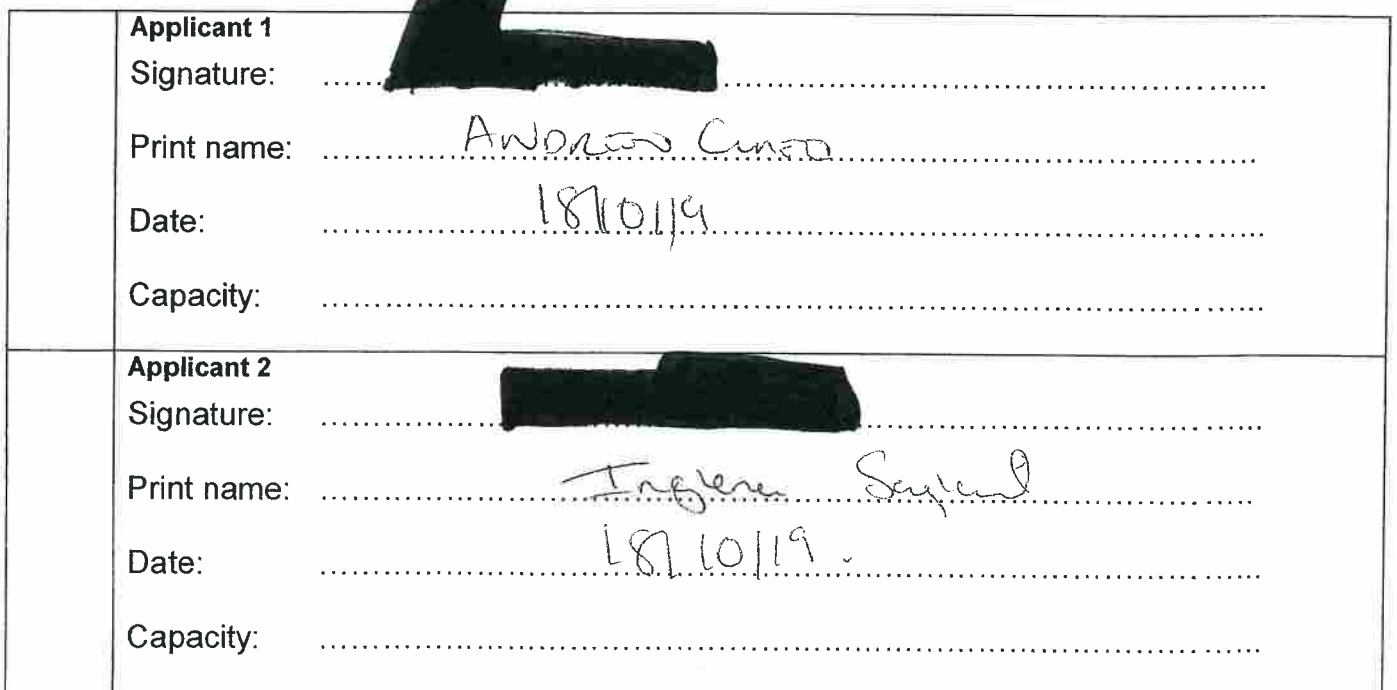 Applicant 1
Signature:
Print name: ANDREW
Date: 18/10/19
Capacity:
Applicant 2
Signature:
Print name:
Date: 18/10/19.
Capacity: